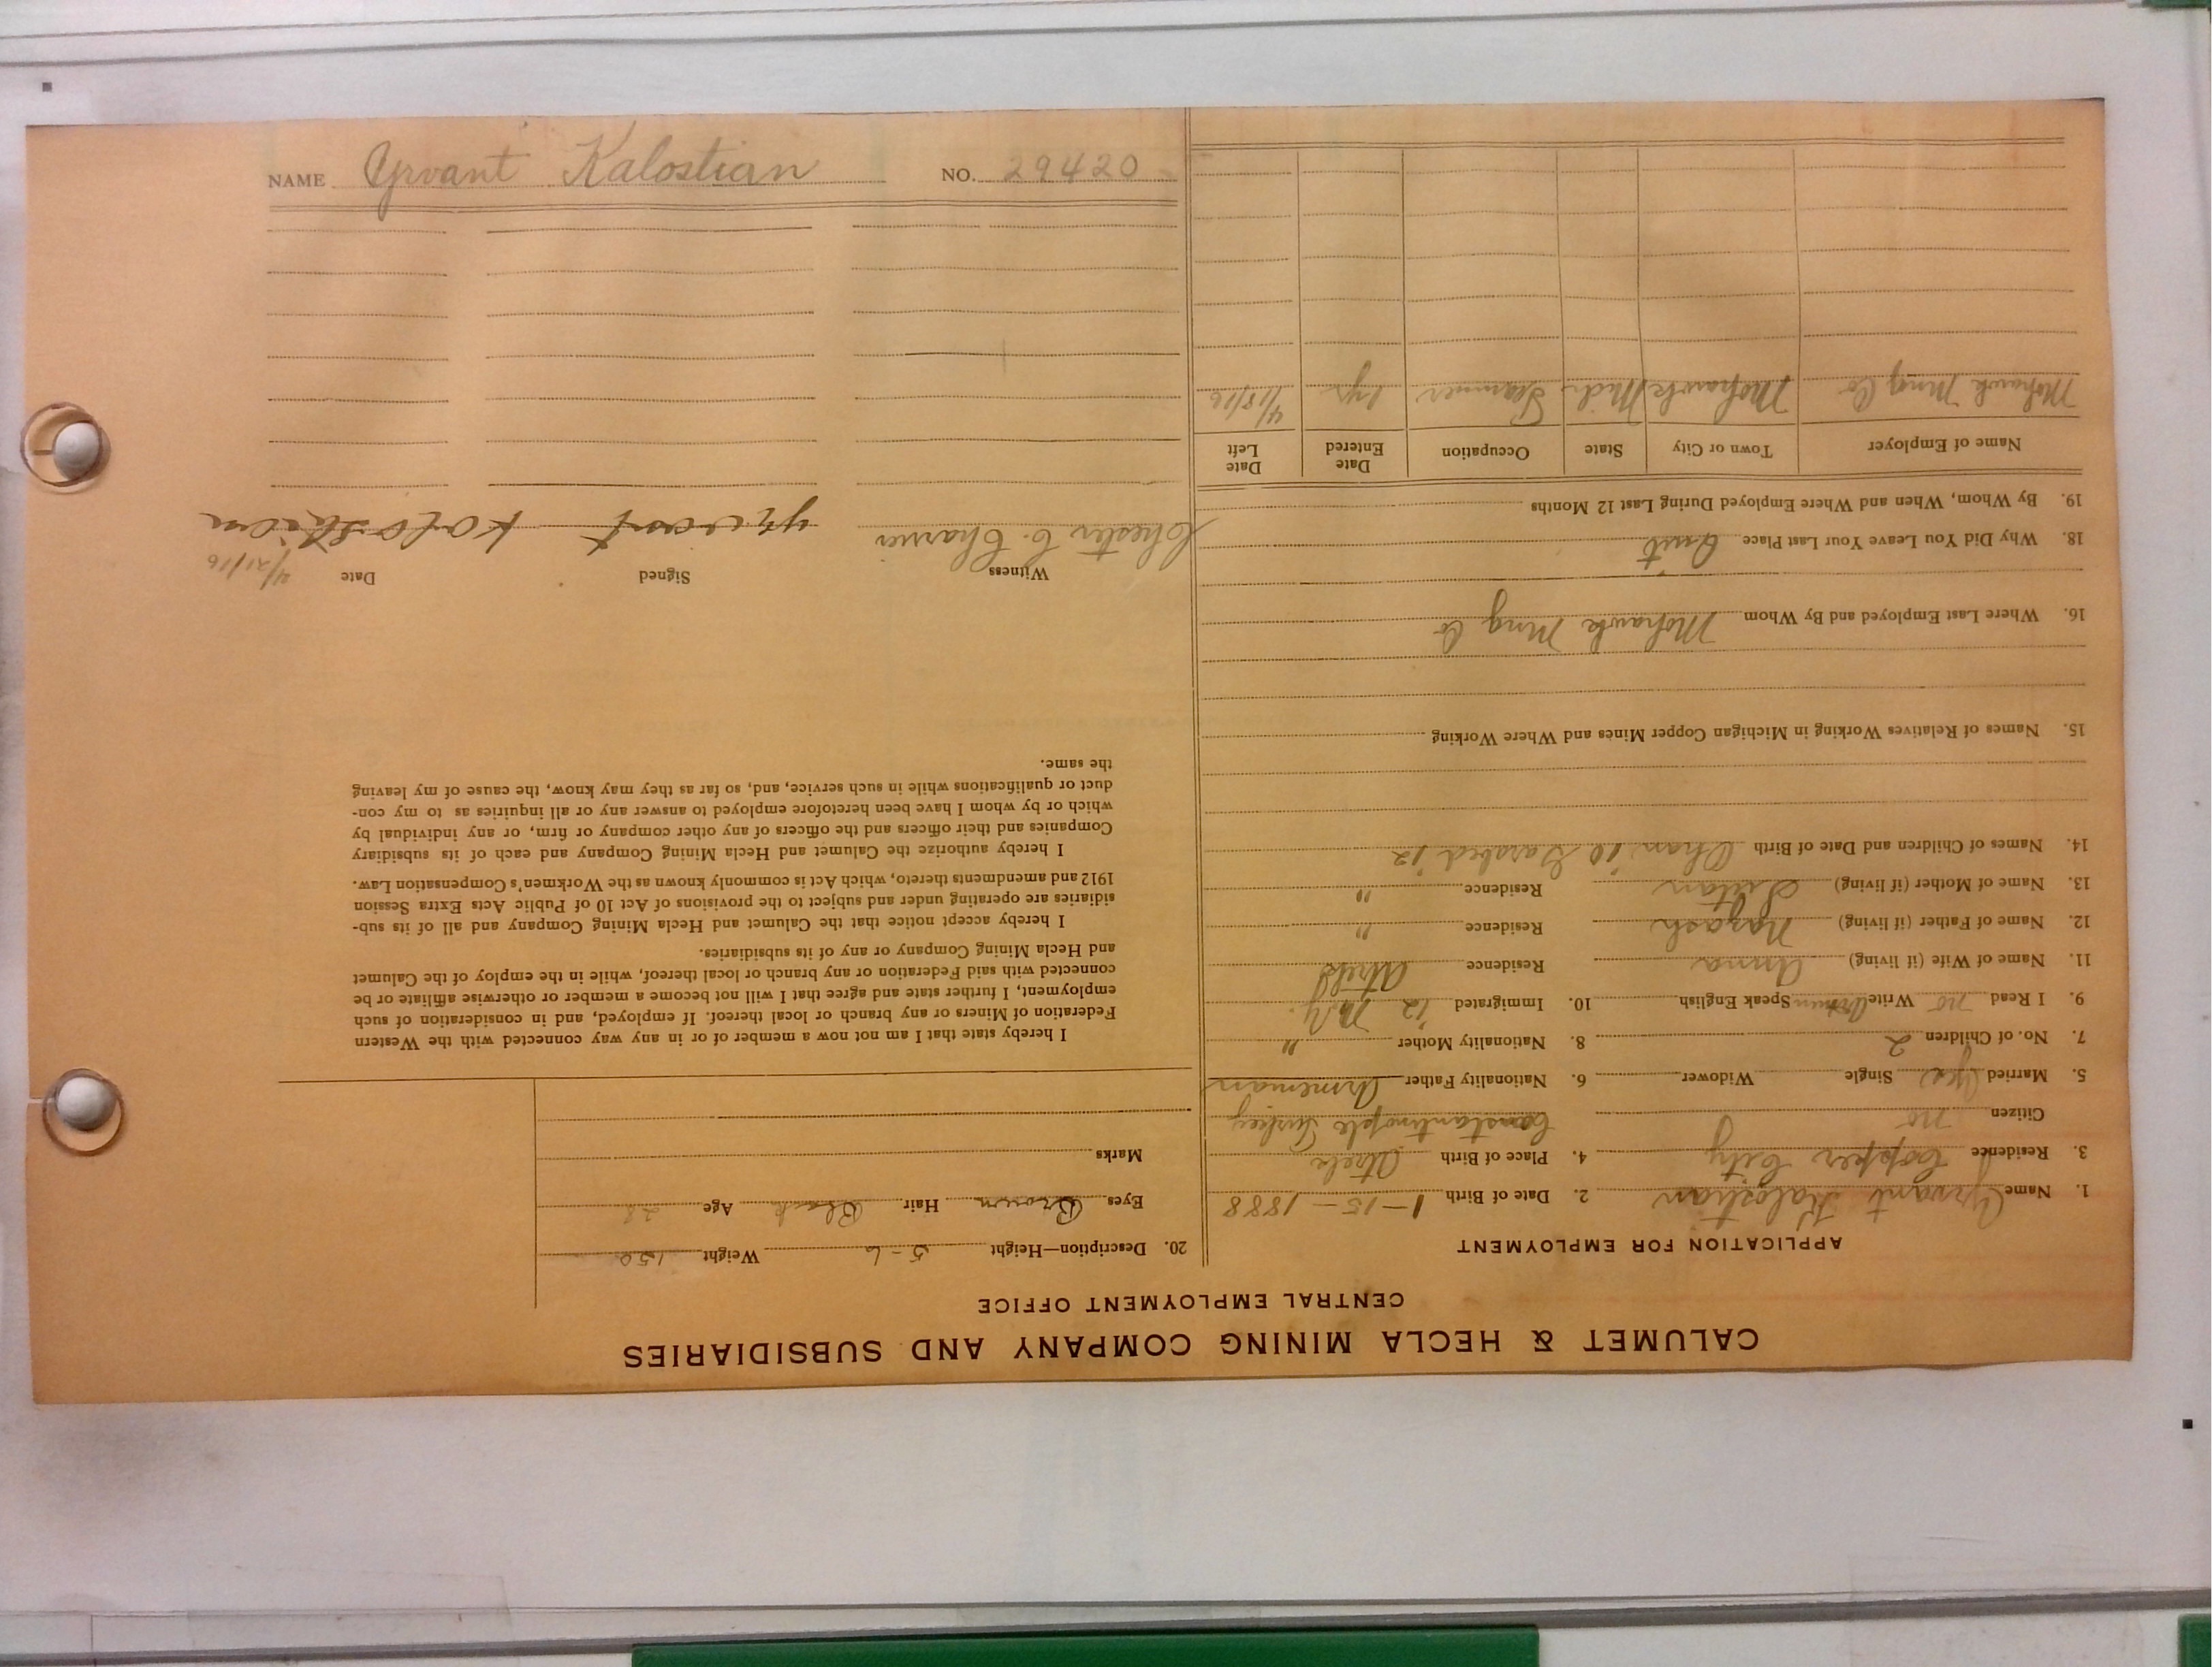 NAME Yrvant Kalostian NO. 29420
CALUMET & HECLA MINING COMPANY AND SUBSIDIARIES
CENTRAL EMPLOYMENT OFFICE
APPLICATION FOR EMPLOYMENT
1. Name Yrvant Kalostian 2. Date of Birth 1-15-1888
3. Residence Copper City 4. Place of Birth
Citizen no Constantinople Turkey
5. Married Yes Single Widower 6. Nationality Father Armenian
7. No. of Children 2 8. Nationality Mother "
9. I Read no Write Speak English 10. Immigrated '12 N.Y.
11. Name of Wife (if living) Anna Residence
12. Name of Father (if living) Residence "
13. Name of Mother (if living) Residence "
14. Names of Children and Date of Birth '10 Garabed '12
15. Names of Relatives Working in Michigan Copper Mines and Where Working
16. Where Last Employed and By Whom Mohawk Mng Co
18. Why Did You Leave Your Last Place Quit
19. By Whom, When and Where Employed During Last 12 Months
Name of Employer Town or City State Occupation Date Entered Date Left
Mohawk Mng Co Mohawk Mich Trammer 1 yr 4/18/16
20. Description—Height 5-6 Weight 150
Eyes Brown Hair Black Age 28
Marks
I hereby state that I am not now a member of or in any way connected with the Western
Federation of Miners or any branch or local thereof. If employed, and in consideration of such
employment, I further state and agree that I will not become a member or otherwise affiliate or be
connected with said Federation or any branch or local thereof, while in the employ of the Calumet
and Hecla Mining Company or any of its subsidiaries.
I hereby accept notice that the Calumet and Hecla Mining Company and all of its sub-
sidiaries are operating under and subject to the provisions of Act 10 of Public Acts Extra Session
1912 and amendments thereto, which Act is commonly known as the Workmen's Compensation Law.
I hereby authorize the Calumet and Hecla Mining Company and each of its subsidiary
Companies and their officers and the officers of any other company or firm, or any individual by
which or by whom I have been heretofore employed to answer any or all inquiries as to my con-
duct or qualifications while in such service, and, so far as they may know, the cause of my leaving
the same.
Witness Signed Date
Chester C. Yrvant Kolostian 4/21/16